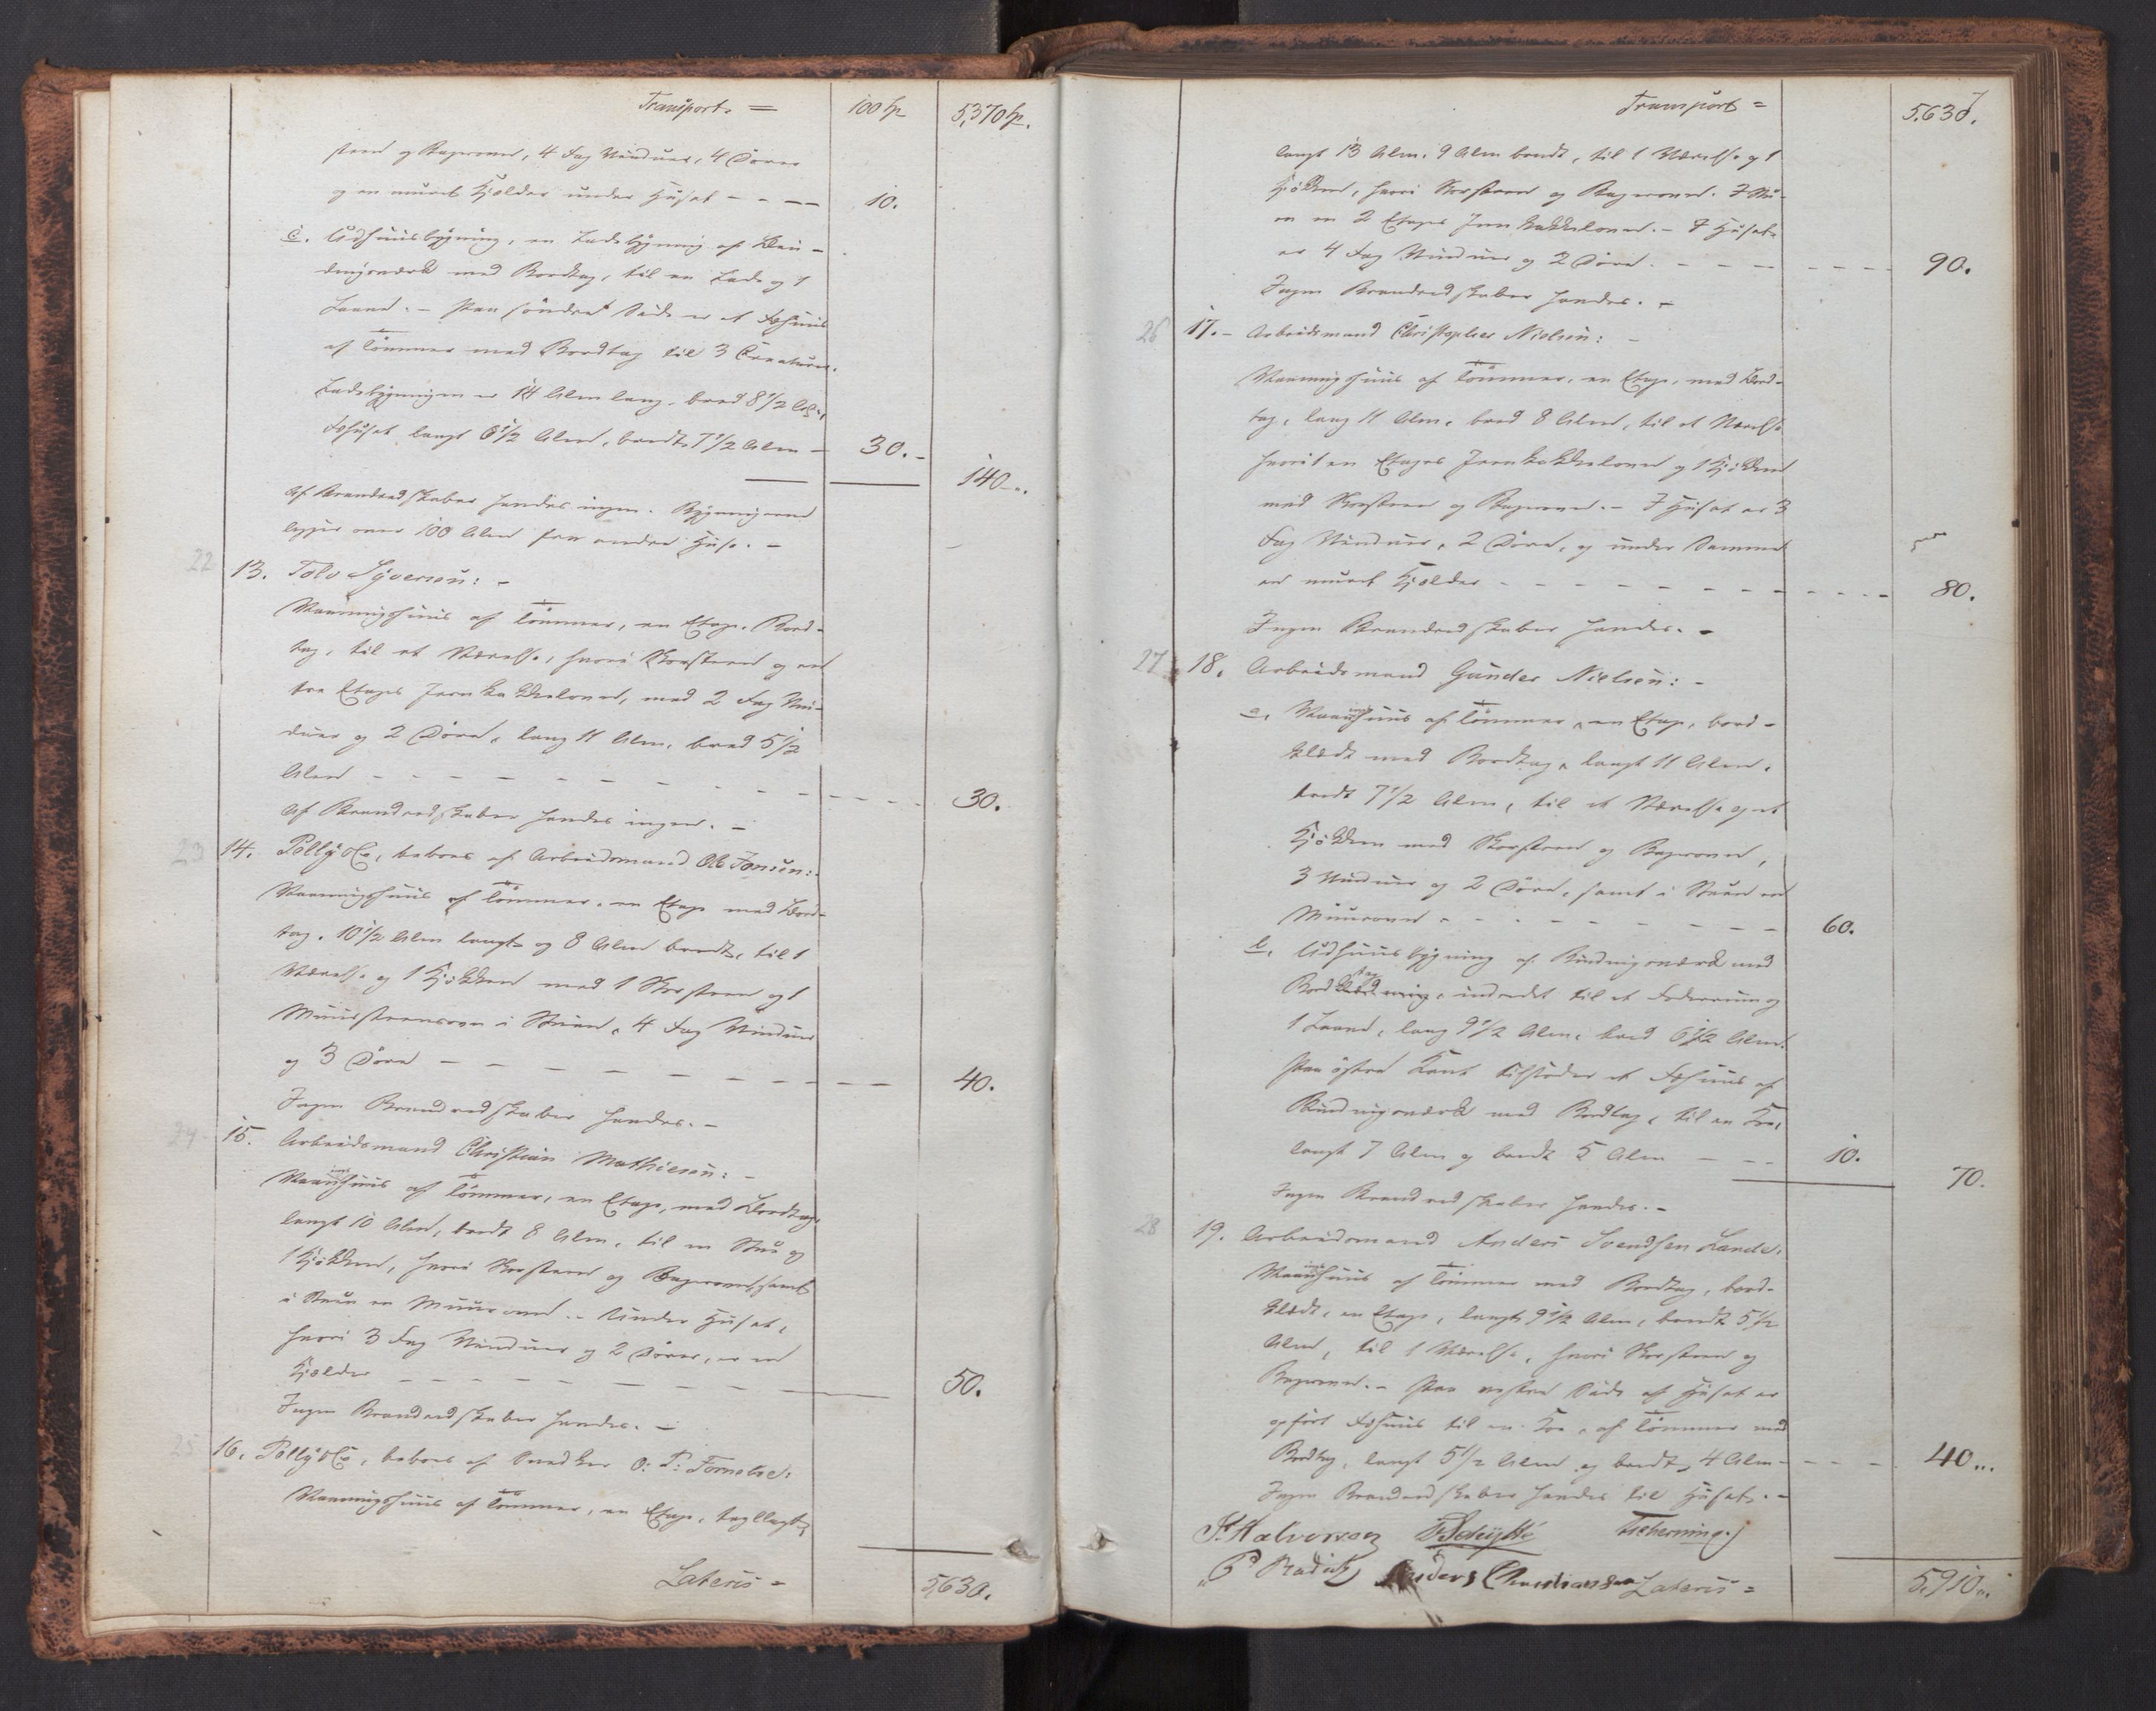 Transport. = 100 Sp 5,370 Sp.
steen og Bagerovn, 4 Fag Vinduer, 4 Dörer
og en muret Kjælder under Huset - - - - 10.
c. Udhuusbygning, en Ladebygning af Bin-
dingsværk med Bordtag, til en Lade og 1
Laave. - Paa söndre Side er et Fæhuus
af Tömmer med Bordtag til 3 Creaturer.
Ladebygningen er 14 Alen lang, bred 8 1/2 Al:,
Fæhuset langt 6 1/2 Alen, bredt 7 1/2 Alen - 30. -
140 - .
Af Brandredskaber havdes ingen. Bygningerne
ligger over 100 Alen fra andre Huse. -
22 13. Tolv Syversen: -
Vaaningshuus af Tömmer, en Etage. Bord-
tag, til et Værelse, hvori Skorsteen og en
tre Etages Jernkakkelovn, med 2 Fag Vin-
duer og 2 Döre, lang 11 Alen, bred 5 1/2
Alen - - - - - - - - - - - - 30.
Af Brandredskaber havdes ingen. -
23 14. Pölly & Co, beboes af Arbeidsmand Ole Jonsen:
Vaaningshuus af Tömmer, en Etage med Bord-
tag. 10 1/2 Alen langt og 8 Alen bredt, til 1
Værelse og 1 Kjökken med 1 Skorsteen og 1
Muursteensovn i Stuen, 4 Fag Vinduer
og 3 Döre - - - - - - - - - - 40.
Ingen Brandredskaber havdes. -
24. 15. Arbeidsmand Christian Mathiesen: -
Vaaningshuus af Tömmer, en Etage, med Bordtag,
langt 10 Alen, bredt 8 Alen, til en Stue og
1 Kjökken, hvori Skorsteen og Bagerovn, samt
i Stuen en Muurovn. - Under Huset,
hvori 3 Fag Vinduer og 2 Dörer, er en
Kjælder - - - - - - - - - - 50.
Ingen Brandredskaber havdes. -
25 16. Pölly & Co, beboes af Snedker O: P:
Vaaningshuus af Tömmer, en Etage, tegllagt,
Lateris = 5,630.
Transport = 5,630.
langt 13 Alen, 9 Alen bredt, til 1 Værelse og 1
Kjökken, hvori Skorsteen og Bagerovn. I Stu-
en en 2 Etages Jernkakkelovn. - I Huset
er 4 Fag Vinduer og 2 Döre. - - - - - - - 90.
Ingen Brandredskaber havdes. -
26 17. - Arbeidsmand Christopher Nielsen: -
Vaaningshuus af Tömmer, en Etage, med Bord-
tag, lang 11 Alen, bred 8 Alen, til et Værelse
hvori en Etages Jernkakkelovn og 1 Kjökken
med Skorsteen og Bagerovn. - I Huset er 3
Fag Vinduer, 2 Döre, og under Samme
en muret Kjælder - - - - - - - - - - - 80.
Ingen Brandredskaber havdes. -
27 18. Arbeidsmand Gunder Nielsen: -
a, Vaaningshuus af Tömmer, en Etage, bord-
klædt med Bordtag, langt 11 Alen,
bredt 7 1/2 Alen, til et Værelse og et
Kjökken med Skorsteen og Bagerovn,
3 Vinduer og 2 Döre, samt i Stuen en
Muurovn - - - - - - - - - 60.
b. Udhuusbygning af Bindingsværk med
Bordtag, indredet til et Foderrum og
1 Laave, lang 9 1/2 Alen, bred 6 1/2 Alen.
Paa östre Kant tilstöder et Fæhuus af
Bindingsværk med Bordtag, til en Koe,
langt 7 Alen og bredt 5 Alen - - - 10.
70.
Ingen Brandredskaber havdes. -
28 19. Arbeidsmand Anders Svendsen Lande:
Vaaningshuus af Tömmer med Bordtag, bord-
klædt, en Etage, langt 9 1/2 Alen, bredt 5 1/2
Alen, til 1 Værelse, hvori Skorsteen og
Bagerovn. - Paa vestre Side af Huset er
opfört Fæhuus til en Koe, af Tömmer med
Bordtag, langt 5 1/2 Alen og bredt 4 Alen - - - - 40...
Ingen Brandredskaber havdes til Huset. -
Halvorsen Schytte Tscherning.
Anders Christiansen Lateris = 5,910..